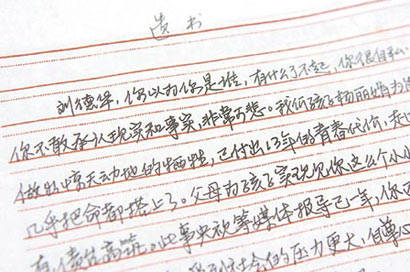 遗书
刘德华，你以为你是谁，有什么了不起，你很自私，
你不敢承认现实和事实，非常可悲。我低孩子杨丽娟为
做出惊天动地的牺牲，已付出13年的青春代价，走
几乎把命都搭上了。父母为孩子实现见你这么个小小
负债高筑。此事央视等媒体报导已一年，你
社会的压力更大，自尊心